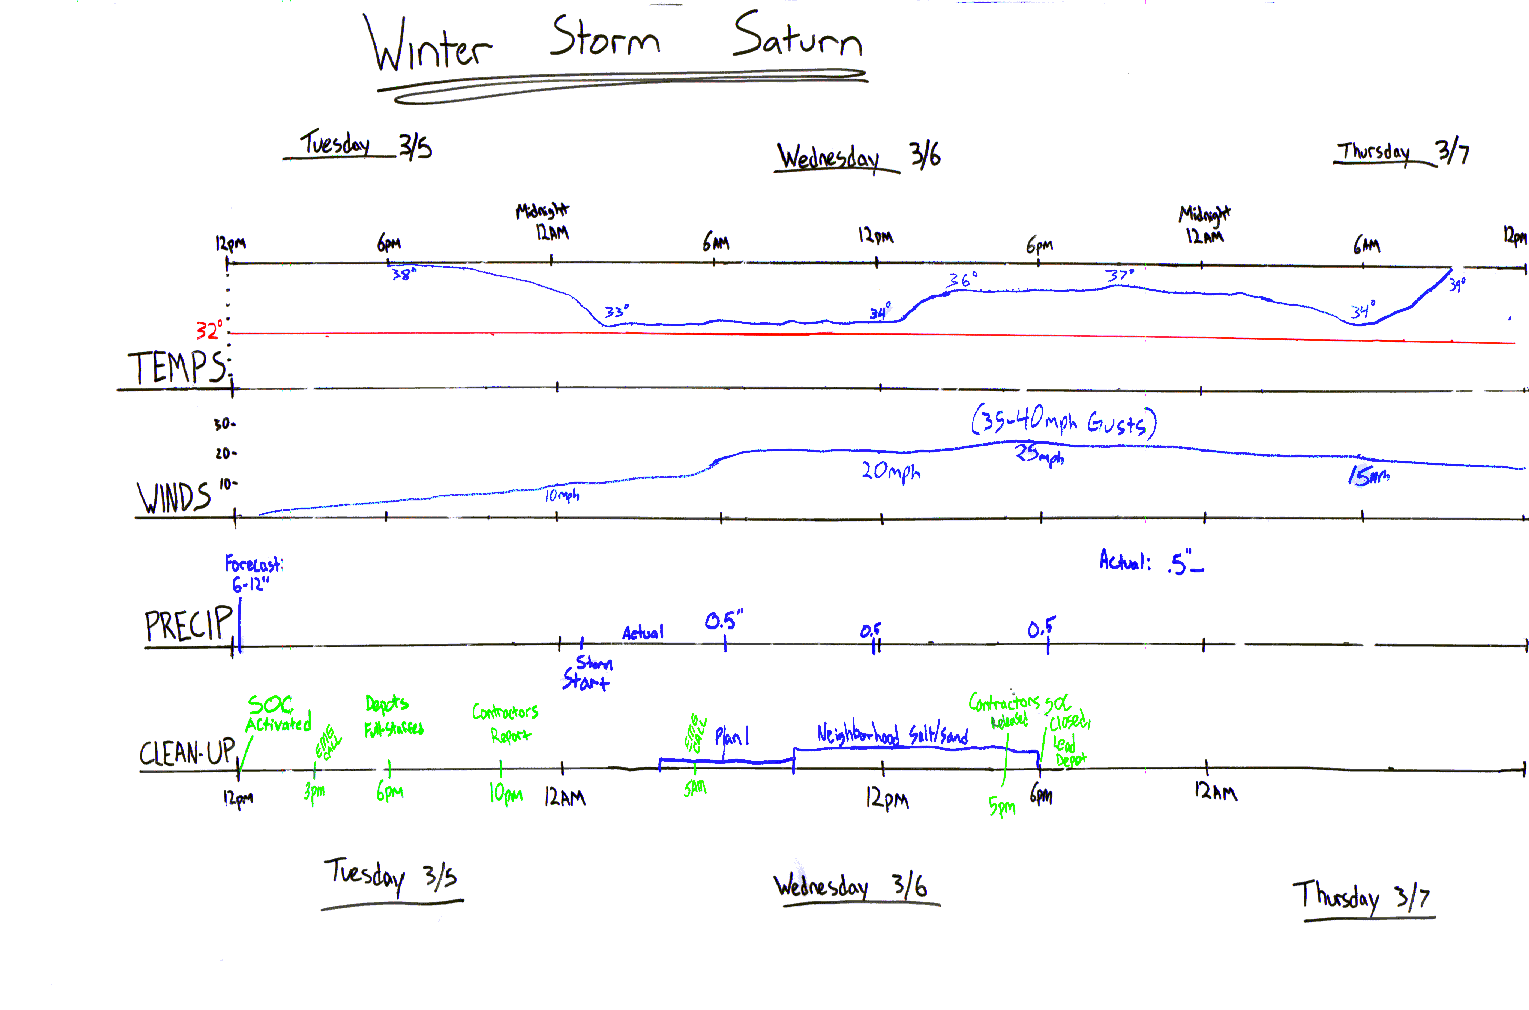 Winter Storm Saturn
Tuesday 3/5
Wednesday 3/6
Thursday 3/7
Midnight
Midnight
12pm
6pm
12AM
6AM
12pm
6pm
12AM
6AM
12pm
38°
33°
34°
36°
37°
34°
39°
32°
TEMPS
30-
20-
10-
WINDS
10mph
20mph
(35-40mph Gusts)
25mph
15mph
Forecast:
6-12"
Actual: .5"
PRECIP
Actual
0.5"
0.5
0.5
Storm
Start
SOC
Activated
Depots
Full-Staffed
Contractors
Report
Plan 1
Neighborhood Salt/Sand
Contractors
Released
SOC
Closed,
Lead
Depot
CLEAN-UP
12pm
3pm
6pm
10pm
12AM
5AM
12pm
5pm
6pm
12AM
Tuesday 3/5
Wednesday 3/6
Thursday 3/7